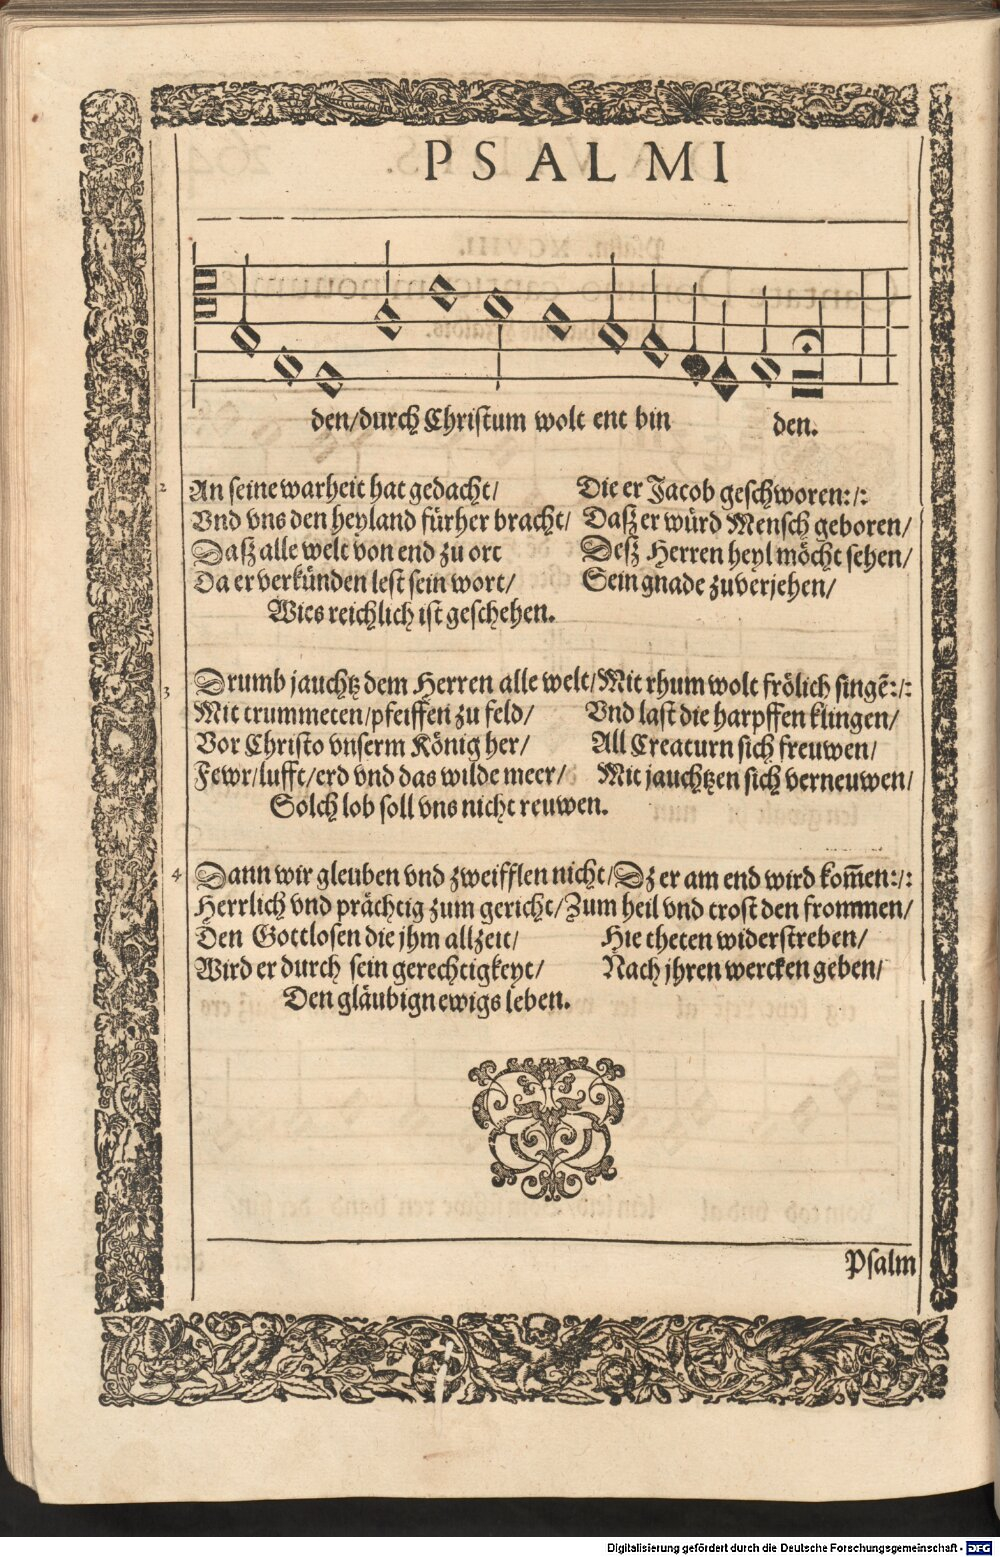 PSALMI
den/durch Christum wolt ent bin den.
2 An seine warheit hat gedacht/ Die er Jacob geschworen:/:
Vnd vns den heyland fürher bracht/ Dasz er würd Mensch geboren/
Dasz alle welt von end zu ort Desz Herren heyl möcht sehen/
Da er verkünden lest sein wort/ Sein gnade zuverjehen/
Wies reichlich ist geschehen.
3 Drumb jauchtz dem Herren alle welt/ Mit rhum wolt frölich singē:/:
Mit trummeten/pfeiffen zu feld/ Vnd last die harpffen klingen/
Vor Christo vnserm König her/ All Creaturn sich freuwen/
Fewr/lufft/erd vnd das wilde meer/ Mit jauchtzen sich verneuwen/
Solch lob soll vns nicht reuwen.
4 Dann wir gleuben vnd zweifflen nicht/ Dz er am end wird kom̄en:/:
Herrlich vnd prächtig zum gericht/ Zum heil vnd trost den frommen/
Den Gottlosen die jhm allzeit/ Hie theten widerstreben/
Wird er durch sein gerechtigkeyt/ Nach jhren wercken geben/
Den gläubign ewigs leben.
Psalm
Digitalisierung gefördert durch die Deutsche Forschungsgemeinschaft - DFG